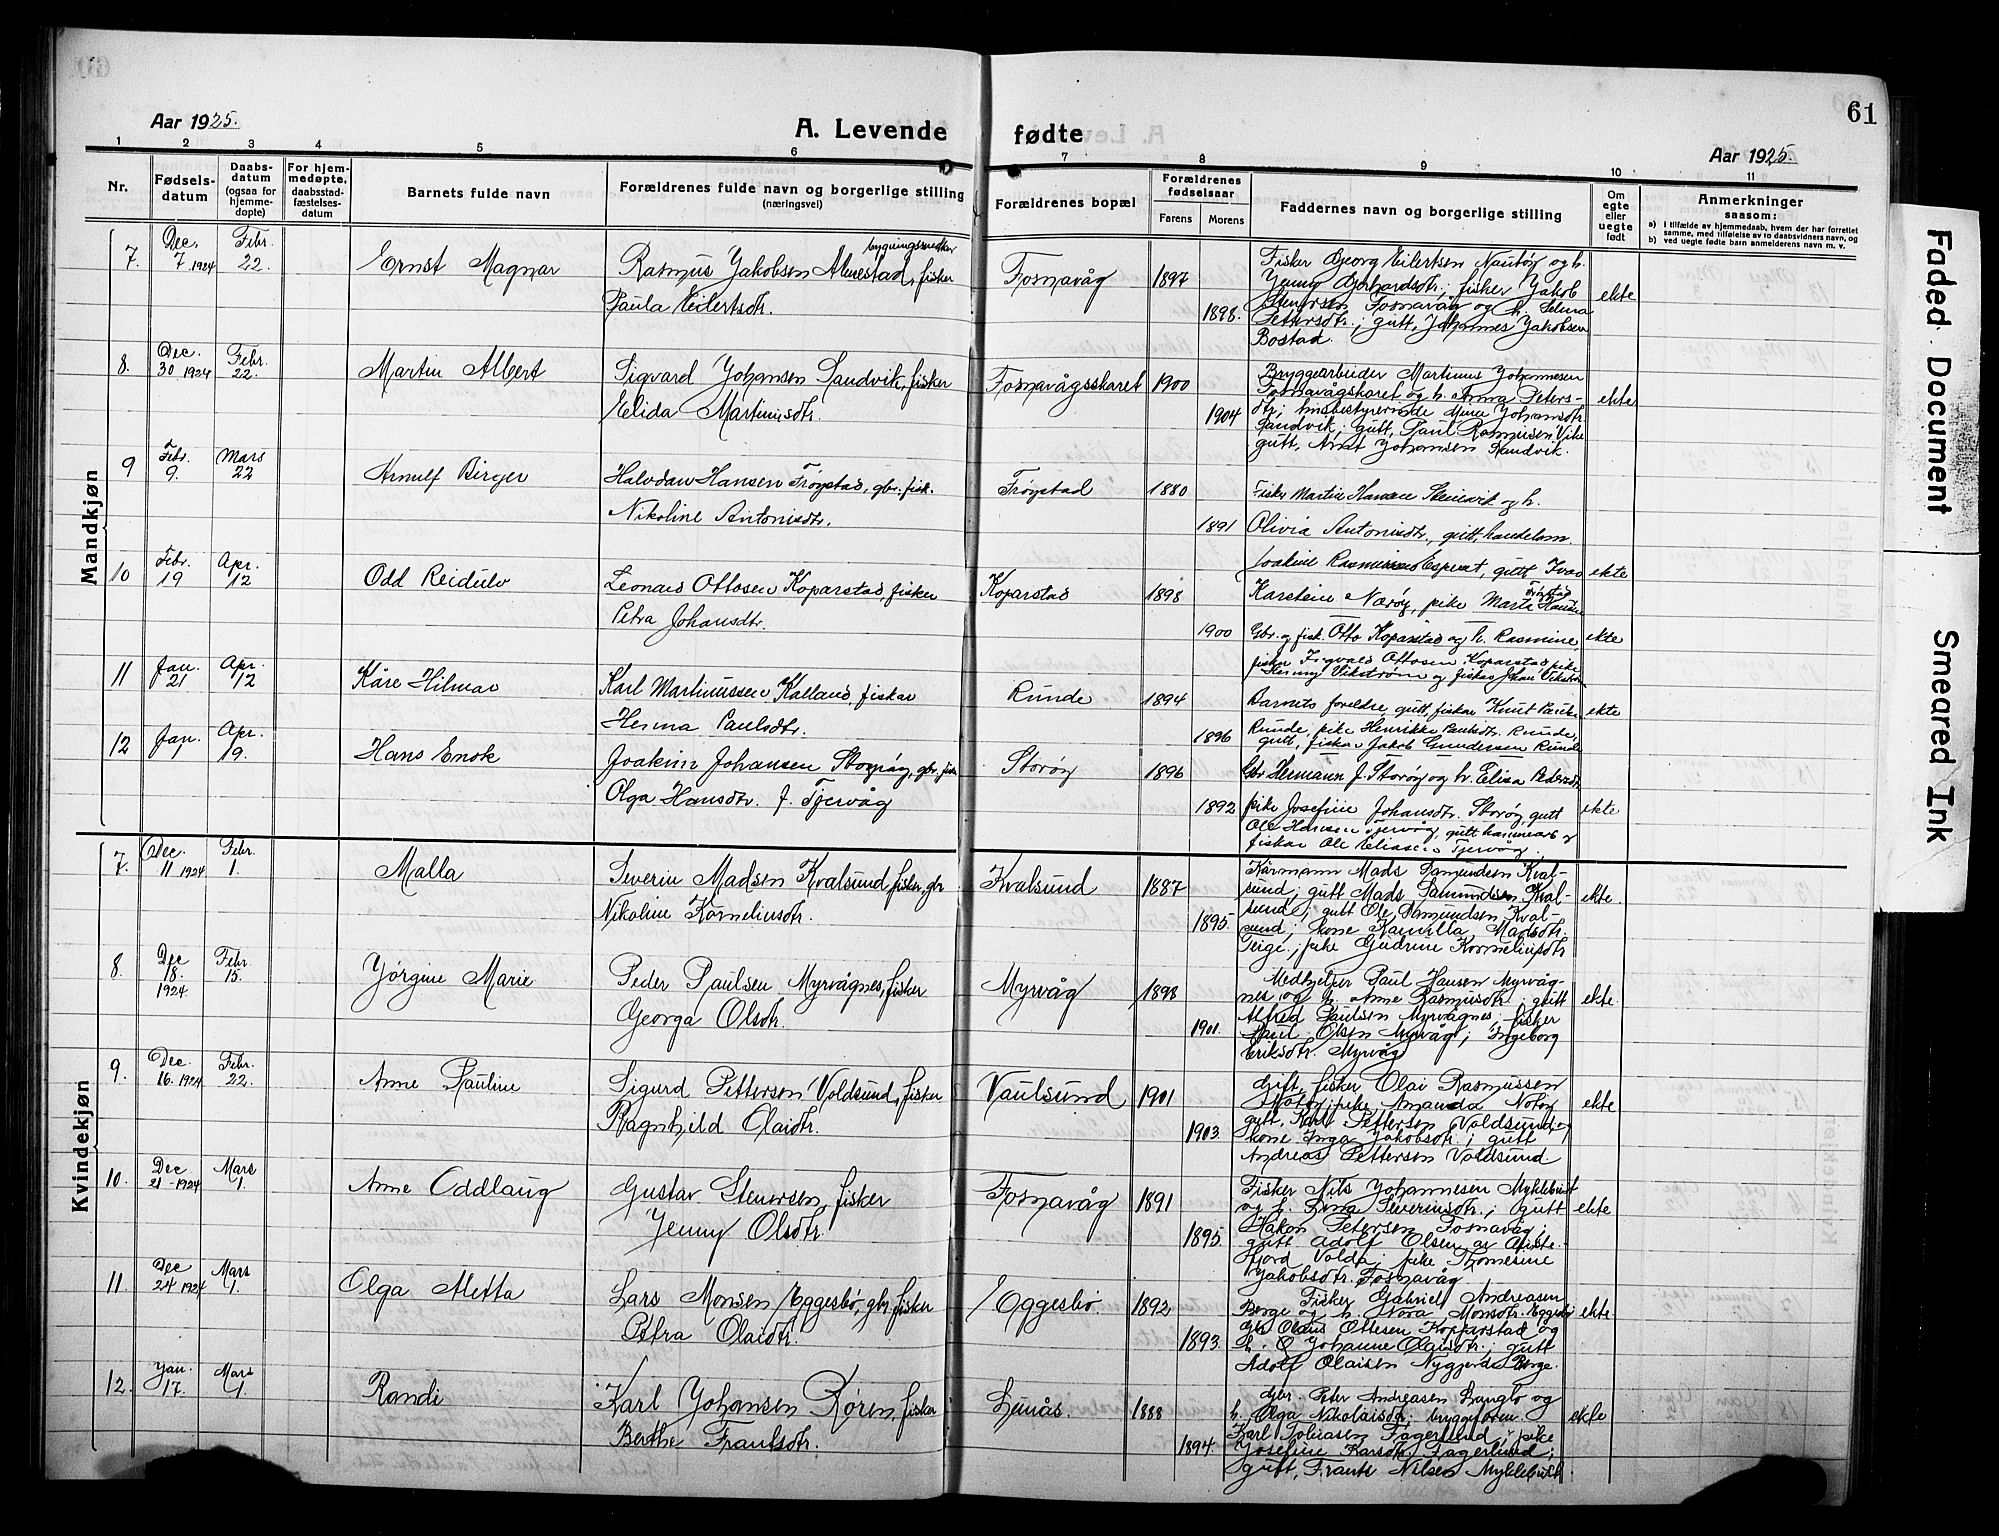 61
Aar 1925.
A. Levende
fødte
Aar 1925.
1 2 3 4 5 6 7 8 9 10 11
Nr.
Fødsels-
datum
Daabs-
datum
(ogsaa for
hjemme-
døpte)
For hjem-
medøpte,
daabsstad-
fæstelses-
datum
Barnets fulde navn
Forældrenes fulde navn og borgerlige stilling
(næringsvei)
Forældrenes bopæl
Forældrenes
fødselsaar
Farens
Morens
Faddernes navn og borgerlige stilling
Om
egte
eller
uegte
født
Anmerkninger
saasom:
a) I tilfælde av hjemmedaab, hvem der har forrettet
samme, med tilføielse av to daabsvidners navn, og
b) ved uegte fødte barn anmelderens navn m. v.
Mandkjøn
7. Dec. 7 1924 Febr. 22. Ernst Magnar
bygningssnedker
Rasmus Jakobsen Almestad, fisker
Paula Eilertsdtr.
Fosnavåg 1897 1898.
Fisker Georg Eilertsen Nautøy og h.
Jenny Gerhardsdtr.; fisker Jakob
Stenersen Fosnavåg og h. Selma
Pettersdtr.; gutt, Johannes Jakobsen
Bostad.
ekte
8. Dec. 30 1924 Febr. 22. Martin Albert
Sigvard Johansen Sandvik, fisker
Elida Martinusdtr.
Fosnavågsskaret 1900 1904
Bryggearbeider Martinus Johannesen
Fosnavågskaret og h. Anna Peters-
dtr; husbestyrerinde Johansdtr.
Sandvik; gutt, Paul Rasmusen Vike
gutt, Arnt Johansen Sandvik.
ekte
9 Febr. 9. Mars 22 Arnulf Birger
Halvdan Hansen Frøystad, gbr. fisk.
Nikoline Antonisdtr.
Frøystad 1880 1891
Fisker Martin Hansen og h.
Olivia Antonisdtr., gutt, handelsm.
10 Febr. 19 Apr. 12 Odd Reidulv
Leonard Ottosen Koparstad, fisker
Petra Johansdtr.
Koparstad 1898 1900
Joakim Rasmussen gutt Ivar ekte
Karsteine Nærøy, pike Marta Hansen
Frøystad
Gbr. og fisk. Otto Koparstad og h. Rasmine, ekte
fisker Ingvald Ottosen Koparstad pike
Jenny Vikstrøm og fisker Johan Vikstrøm
11 Jan. 21 Apr. 12 Kåre Hilmar
Karl Martinussen Kalland, fisker
Herma Paulsdtr.
Runde 1894 1896
Barnets foreldre, gutt, fisker Knut Pauls. ekte
Runde, pike Henrikke Paulsdtr. Runde,
gutt, fisker Jakob Gundersen Runde
12 Jan. 7 Apr. 19. Hans Enok
Joakim Johansen Storøy, gbr. fisk.
Olga Hansdtr. f. Tjervåg
Storøy 1896 1892
Gbr Hermann J. Storøy og h. Elisa Pedersdtr.
pike Josefine Johansdtr. Storøy, gutt ekte
Ole Hansen Tjervåg, gutt
fisker Ole Eliasen Tjervåg.
Kvindekjøn
7. Dec. 11 1924 Febr. 1. Malla
Severin Madsen Kvalsund, fisker, gbr
Nikoline Kornelinsdtr.
Kvalsund 1887 1895
Kårmann Mads Samundsen Kval-
sund; gutt Mads Samundsen Kval-
sund, gutt Ole Samundsen Kval-
sund; kone Kamilla Madsdtr.
Teige; pike Gudrun Kornelinsdtr
ekte
8. Dec 18. 1924 Febr. 15. Jørgine Marie
Peder Paulsen Myrvågnes, fisker
Georga Olsdtr.
Myrvåg 1898 1901
Medhjelper Paul Hansen Myrvåg-
nes og h. Anne Rasmusdtr.; gutt
Alfred Paulsen Myrvågnes; fisker
Paul Olsen Myrvåg; Ingeborg
Eriksdtr. Myrvåg
ekte.
9. Dec. 16. 1924 Febr. 22. Anne Pauline
Sigurd Pettersen Voldsund, fisker
Ragnhild Olaidtr.
Vaulsund 1901 1903
Gift, fisker Olai Rasmussen
pike Amanda
gutt, Karl Pettersen Voldsund;
kone Inga Jakobsdtr.; gutt
Andreas Pettersen Voldsund
ekte
10. Dec 21 - 1924 Mars 1. Anne Oddlaug
Gustav Stenersen, fisker
Jenny Olsdtr.
Fosnavåg 1891 1895
Fisker Nils Johannesen Myklebust
og h. Lina Severinsdtr.; Gutt
Håkon Petersen Fosnavåg;
gutt Adolf Olsen av Auste-
fjord Volda; pike Thomesine
Jakobsdtr. Fosnavåg
ekte
11. Dec 24 1924 Mars 1. Olga Aletta
Lars Monsen Eggesbø, gbr, fisker
Petra Olaidtr.
Eggesbø 1892 1893
Fisker Gabriel Andreasen
Berge og h. Nora Monsdtr. Eggesbø
Gbr Olaus Ottesen Kopparstad og
h. O Johanne Olaisdtr.; gutt
Adolf Olaisen Nygjerde Berge.
ekte
12. Jan. 17. Mars 1. Randi
Karl Johansen Røren, fisker
Berthe Frantsdtr.
Leinås. 1888 1894
Gbr Peter Andreasen Langlo og
h. Olga Nikolaisdtr; bryggeform.
Karl Tobiasen Fagerlund; pike
Josefine Larsdtr. Fagerlund;
gutt, Frants Nilsen Myklebust.
ekte
Faded Document
Smeared Ink